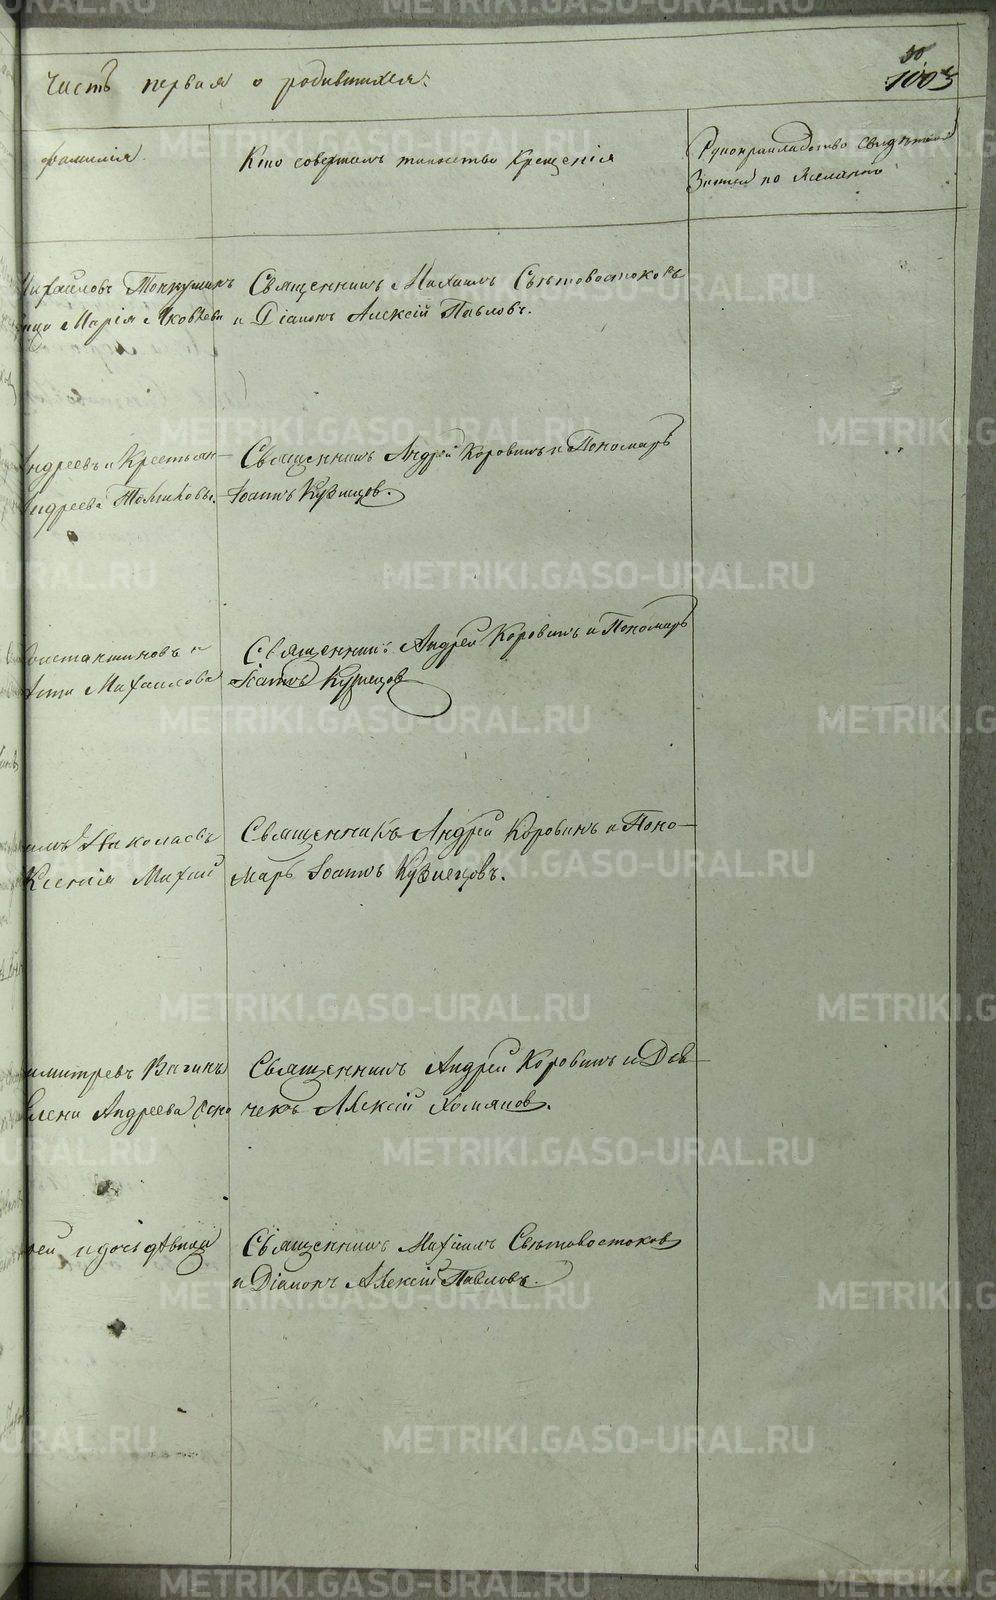 Часть первая о родившихся.
1003
фамилія.
Кто совершалъ таинство Крещенія
Рукоприкладство свидѣтелей
Записи по желанію
Михайловъ
Марія Яковлева
Священникъ Михаилъ Свѣтовостоковъ
и Діаконъ Алексій Павловъ.
Андреевъ и Крестьян-
Андреева
Священникъ Андрей Коровинъ и Пономарь
Іоаннъ Кузнецов.
Константиновъ и
Михаилова
Священникъ Андрей Коровинъ и Пономарь
Іоаннъ Кузнецов
Николаевъ
Ксенія Михай
Священникъ Андрей Коровинъ и Поно-
марь Іоаннъ Кузнецовъ.
Димитревъ Вагинъ
Елена Андреева
Священникъ Андрей Коровинъ и Дья-
чекъ Алексій Хомяков.
и дочь дѣвица
Священникъ Михаилъ Свѣтовостоков
и Діаконъ Алексій Павловъ.
METRIKI.GASO-URAL.RU